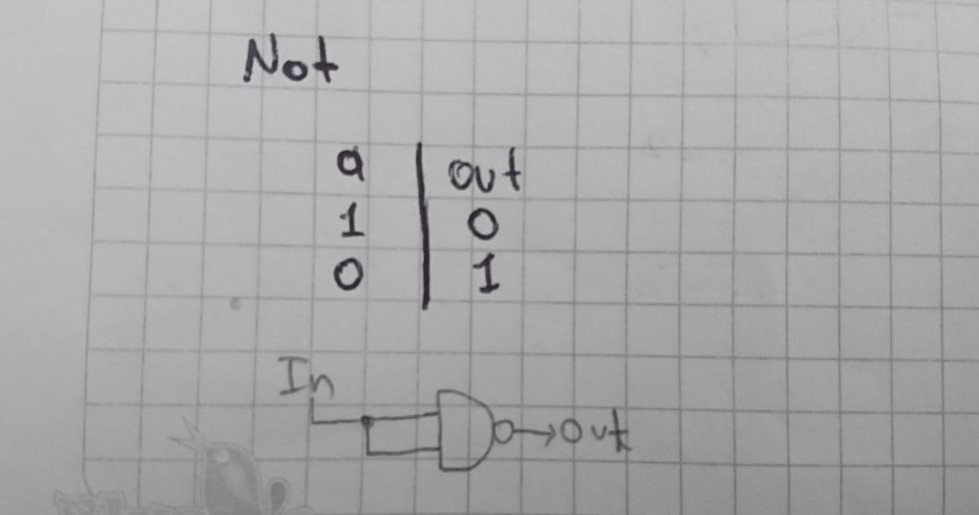 Not
a out
1 0
0 1
In
Out